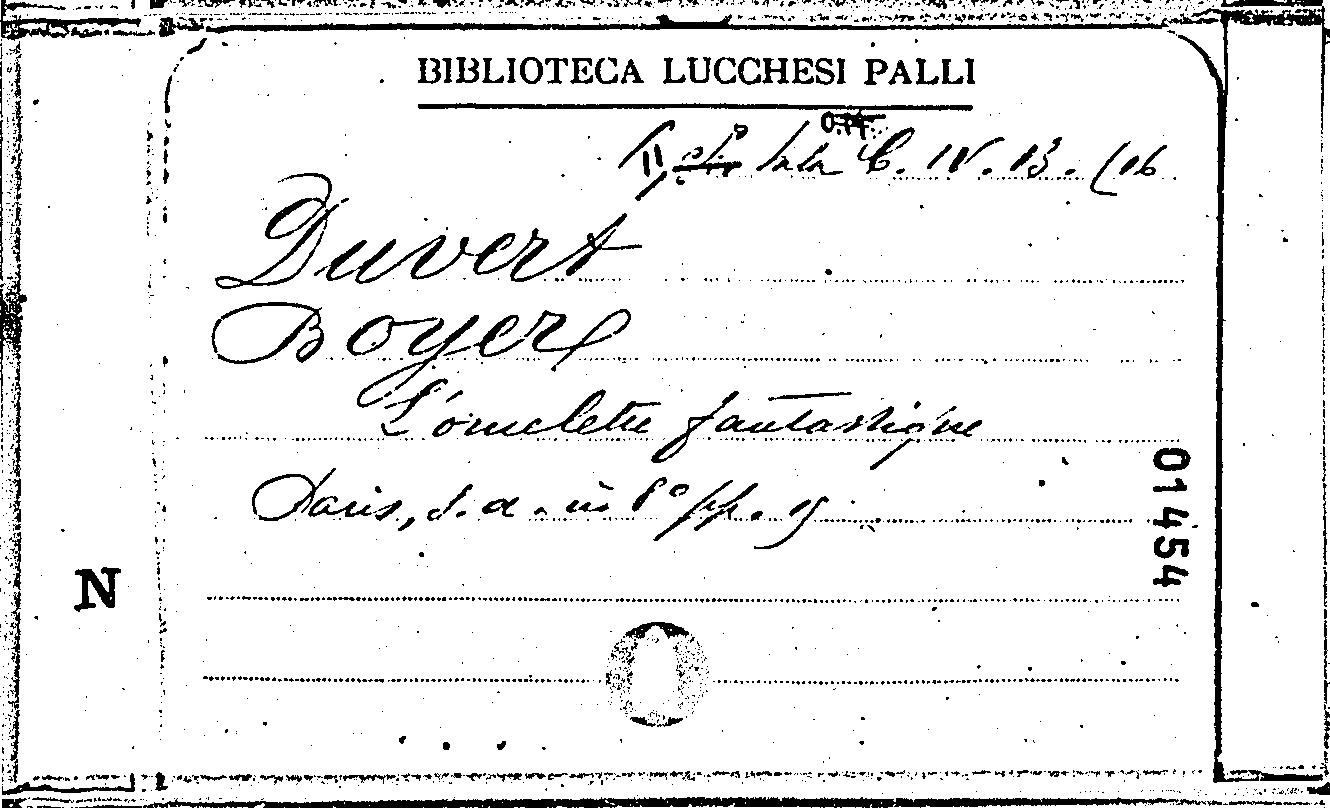 BIBLIOTECA LUCCHESI PALLI
II Sala C. IV. 13. (16
Duvert
Boyer
L'omelette fantastique
Paris, s. a. in 8° pp. 15
01454
N